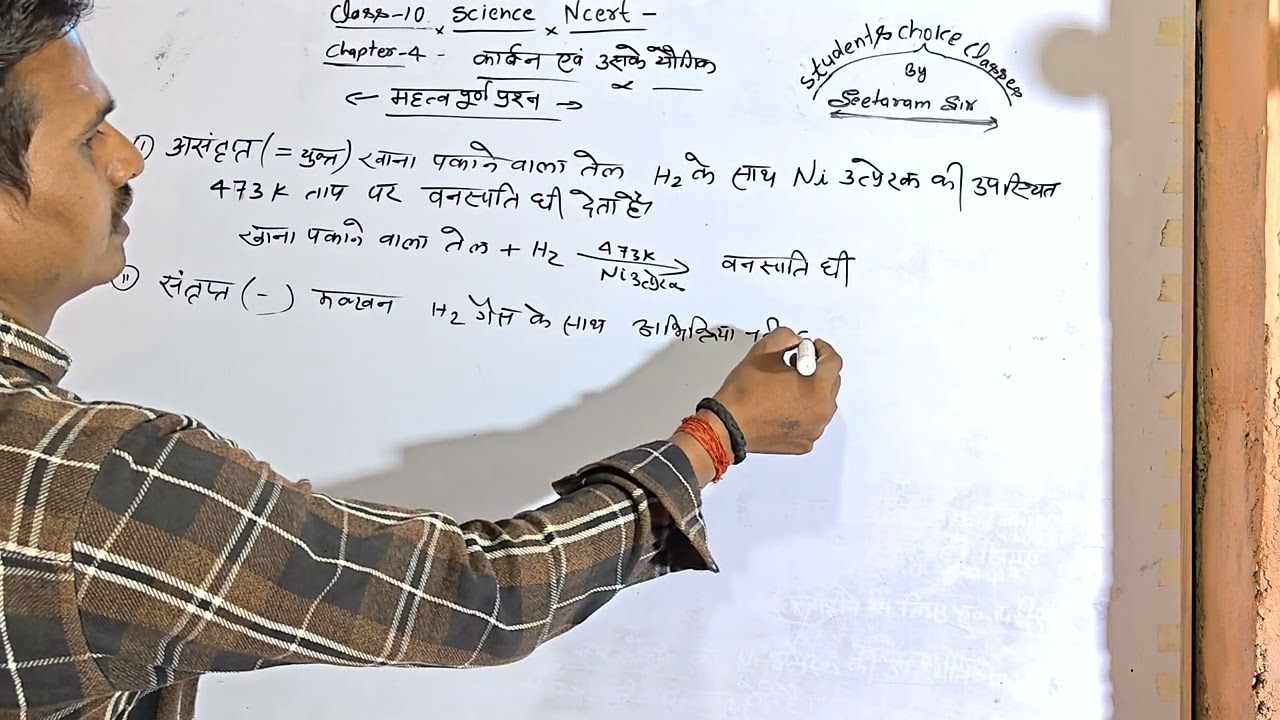 Class-10 × Science × Ncert -
Chapter-4 - कार्बन एवं उसके यौगिक
← महत्वपूर्ण प्रश्न →
Students choice classes
By
Seetaram Sir
(I) असंतृप्त (= युक्त) खाना पकाने वाला तेल H₂ के साथ Ni उत्प्रेरक की उपस्थित
473K ताप पर वनस्पति घी देता है।
खाना पकाने वाला तेल + H₂ 473K वनस्पति घी
Ni उत्प्रेरक
(II) संतृप्त (-) मक्खन H₂ गैस के साथ अभिक्रिया